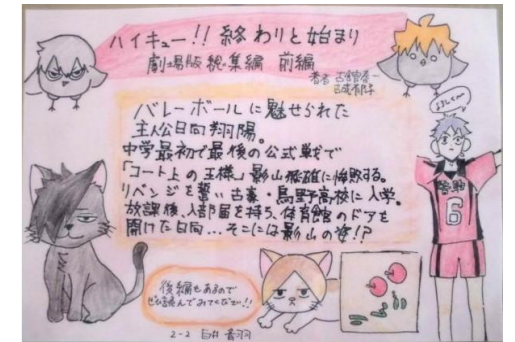 ハイキュー!! 終わりと始まり
劇場版総集編 前編
著者 古舘春一
よろしくっス
バレーボールに魅せられた
主人公日向翔陽。
中学最初で最後の公式戦で
「コート上の王様」影山飛雄に惨敗する。
リベンジを誓い古豪・烏野高校に入学。
放課後、入部届を持ち、体育館のドアを
開けた日向…そこには影山の姿!?
6
後編もあるので
ぜひ読んでみてください!!
2-2